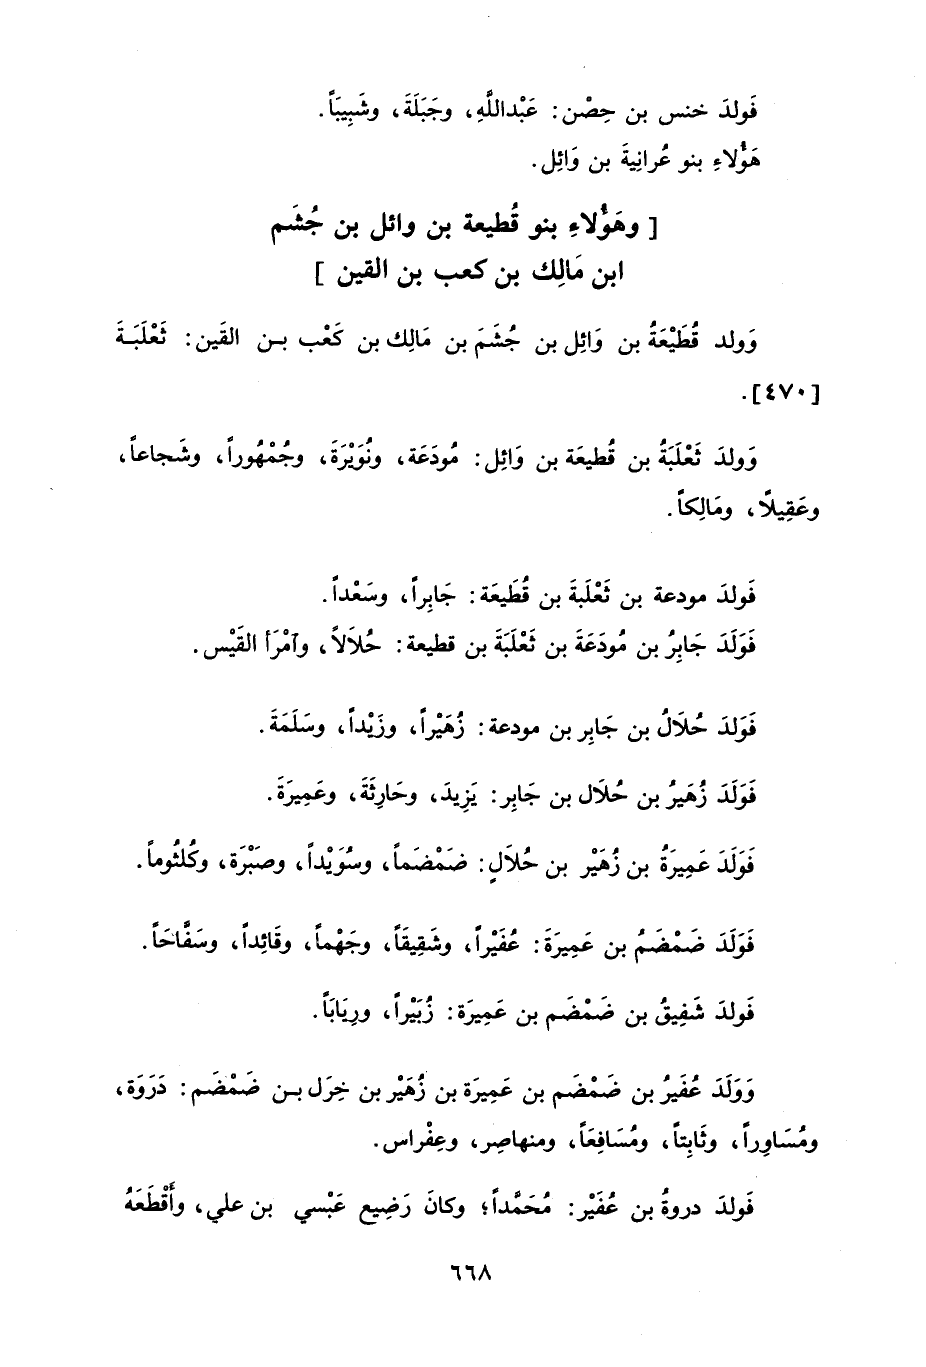 فَولدَ خنس بن حِصْن: عَبْداللَّهِ، وجَبَلَةَ، وشَبِيبَاً.
هَؤُلاءِ بنو عُرانِيةَ بن وَائِل.
[ وهَؤُلاءِ بنو قُطيعة بن وائل بن جُشَم
ابن مَالِك بن كعب بن القين ]
وَولد قُطَيْعَةُ بن وَائِل بن جُشَمَ بن مَالِك بن كَعْب بـن القَين: ثَعْلَبَـةَ
[٤٧٠].
وَولدَ ثَعْلَبَةُ بن قُطيعَة بن وَائِل: مُودَعَة، ونُوَيْرَةَ، وجُمْهُوراً، وشَجاعاً،
وعَقِيلاً، ومَالِكاً.
فَولدَ مودعة بن ثَعْلَبَةَ بن قُطَيعَة: جَابِراً، وسَعْداً.
فَوَلَدَ جَابِرُ بن مُودَعَةَ بن ثَعْلَبَةَ بن قطيعة: حُلاَلاً، وآمْرَأ القَيْس.
فَوَلدَ حُلاَلُ بن جَابِر بن مودعة: زُهَيْراً، وزَيْداً، وسَلَمَةَ.
فَوَلَدَ زُهَيرُ بن حُلاَل بن جَابِر: يَزِيدَ، وحَارِثَةَ، وعَمِيرَةَ.
فَوَلَدَ عَمِيرَةُ بن زُهَيْر بن حُلاَلٍ: ضَمْضَماً، وسُوَيْداً، وصَبْرَة، وكُلثُوماً.
فَوَلَدَ ضَمْضَمُ بن عَمِيرَةَ: عُفَيْراً، وشَقِيقَاً، وجَهْماً، وقَائِداً، وسَفَّاحَاً.
فَولدَ شَفِيقُ بن ضَمْضَم بن عَمِيرَة: زُبَيْراً، ورِيَابَاً.
وَوَلَدَ عُفَيرُ بن ضَمْضَم بن عَمِيرَة بن زُهَيْر بن خِزَل بـن ضَمْضَم: دَرَوَة،
ومُسَاوِراً، وثَابِتاً، ومُسَافِعَاً، ومنهاصِر، وعِفْراس.
فَولدَ دروةُ بن عُفَيْر: مُحَمَّداً؛ وكانَ رَضِيع عَبْسي بن علي، وأَقْطَعَهُ
٦٦٨